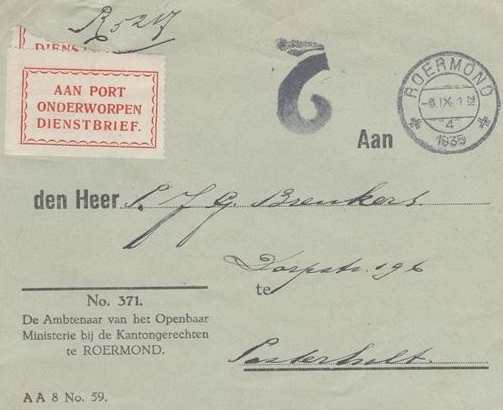 R 5217
DIENSTB
AAN PORT
ONDERWORPEN
DIENSTBRIEF.
2
ROERMOND
-6.IX.
4
1935
Aan
den Heer P. J. G. Breukers.
Dorpstr. 196
te
Posterholt.
No. 371.
De Ambtenaar van het Openbaar
Ministerie bij de Kantongerechten
te ROERMOND.
A A 8 No. 59.